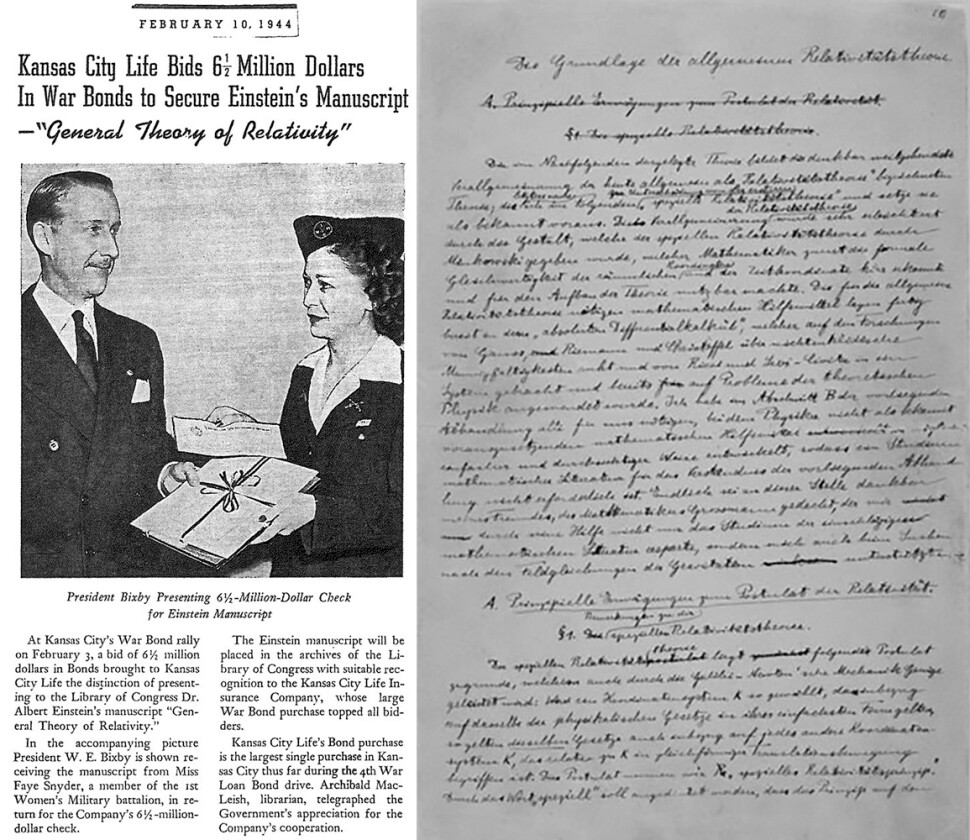 FEBRUARY 10, 1944
Kansas City Life Bids 6½ Million Dollars
In War Bonds to Secure Einstein's Manuscript
—"General Theory of Relativity"
President Bixby Presenting 6½-Million-Dollar Check
for Einstein Manuscript
At Kansas City's War Bond rally
on February 3, a bid of 6½ million
dollars in Bonds brought to Kansas
City Life the distinction of present-
ing to the Library of Congress Dr.
Albert Einstein's manuscript "Gen-
eral Theory of Relativity."
In the accompanying picture
President W. E. Bixby is shown re-
ceiving the manuscript from Miss
Faye Snyder, a member of the 1st
Women's Military battalion, in re-
turn for the Company's 6½-million-
dollar check.
The Einstein manuscript will be
placed in the archives of the Li-
brary of Congress with suitable rec-
ognition to the Kansas City Life In-
surance Company, whose large
War Bond purchase topped all bid-
ders.
Kansas City Life's Bond purchase
is the largest single purchase in Kan-
sas City thus far during the 4th War
Loan Bond drive. Archibald Mac-
Leish, librarian, telegraphed the
Government's appreciation for the
Company's cooperation.
Die Grundlage der allgemeinen Relativitätstheorie.
A. Prinzipielle Erwägungen zum Postulat der Relativität.
§1. Die spezielle Relativitätstheorie.
Die im Nachfolgenden dargelegte Theorie bildet die denkbar weitgehendste
Verallgemeinerung der heute allgemein als "Relativitätstheorie" bezeichneten
Theorie; "spezielle Relativitätstheorie" und setze sie
als bekannt voraus. Die Verallgemeinerung der Relativitätstheorie wurde sehr erleichtert
durch die Gestalt, welche der speziellen Relativitätstheorie durch
Minkowski gegeben wurde, welcher Mathematiker zuerst die formale
Gleichwertigkeit der räumlichen Koordinaten und der Zeitkoordinate klar erkannte
und für den Aufbau der Theorie nutzbar machte. Die für die allgemeine
Relativitätstheorie nötigen mathematischen Hilfsmittel lagen fertig
bereit in dem "absoluten Differentialkalkül", welcher auf den Forschungen
von Gauss, Riemann und Christoffel über nichteuklidische
Mannigfaltigkeiten ruht und von Ricci und Levi-Civita in ein
System gebracht und bereits auf Probleme der theoretischen
Physik angewendet wurde. Ich habe im Abschnitt B der vorliegenden
Abhandlung alle für uns nötigen, bei dem Physiker nicht als bekannt
vorauszusetzenden mathematischen Hilfsmittel in
einfacher und durchsichtiger Weise entwickelt, sodass ein Studium
mathematischer Literatur für das Verständnis der vorliegenden Abhand-
lung nicht erforderlich ist. Endlich sei an dieser Stelle dankbar
meines Freundes, des Mathematikers Grossmann gedacht, der mir
durch seine Hilfe nicht nur das Studium der einschlägigen
mathematischen Literatur ersparte, sondern mich auch beim Suchen
nach den Feldgleichungen der Gravitation unterstützte.
A. Prinzipielle Erwägungen zum Postulat der Relativität.
§1. Bemerkungen zu der speziellen Relativitätstheorie.
Der speziellen Relativitätstheorie liegt folgendes Postulat
zugrunde, welchem auch durch die Galilei-Newton'sche Mechanik Genüge
geleistet wird: Wird ein Koordinatensystem K so gewählt, dass inbezug
auf dasselbe die physikalischen Gesetze in ihrer einfachsten Form gelten,
so gelten dieselben Gesetze auch inbezug auf jedes andere Koordinaten-
system K', das relativ zu K in gleichförmiger Translationsbewegung
begriffen ist. Dies Postulat nennen wir "spezielles Relativitätsprinzip".
Durch das Wort "speziell" soll angedeutet werden, dass das Prinzip auf den